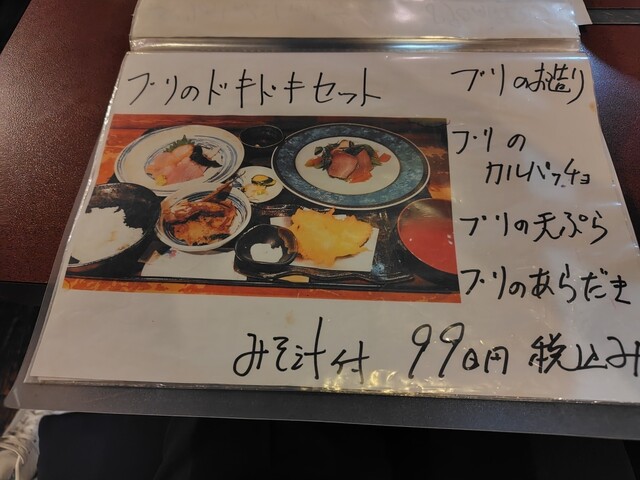 ブリのドキドキセット
ブリのお造り
ブリの
カルパッチョ
ブリの天ぷら
ブリのあらだき
みそ汁付 990円 税込み